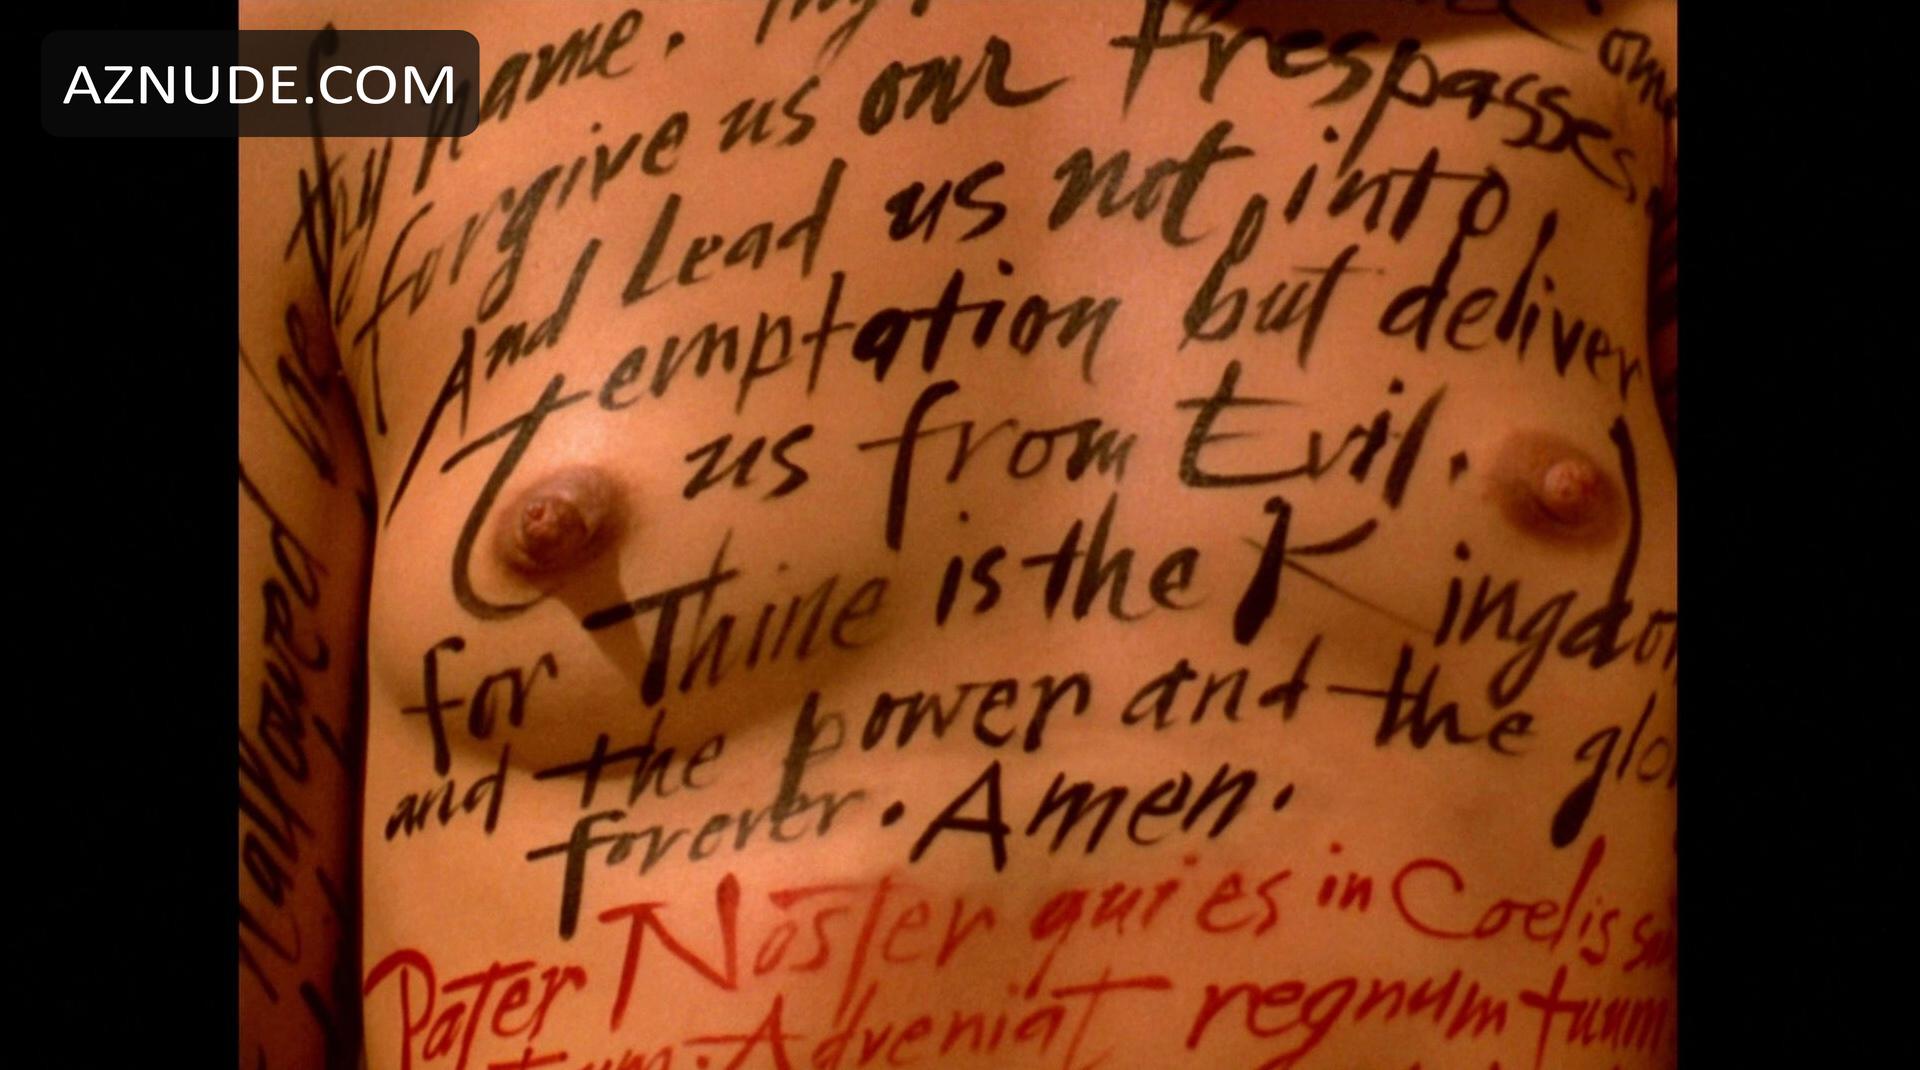 AZNUDE.COM
thy name. Thy
forgive us our trespasses
And Lead us not into
temptation but deliver
us from Evil.
for Thine is the Kingdom
and the power and the glo
forever. Amen.
Pater Noster qui es in Coelis
Adveniat regnum tuum
Hallowed be